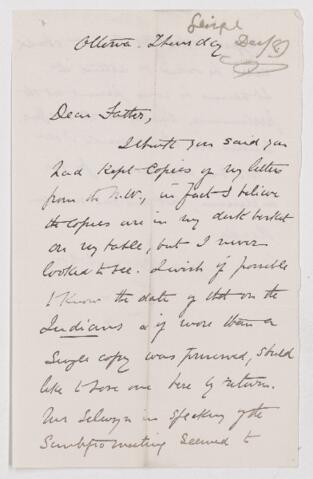 George
Ottawa. Thursday Dec/81
Dear Father,
I think you said you
had kept copies of my letters
from the N.W., in fact I believe
the copies are in my desk basket
on my table, but I never
looked to see. I wish if possible
to know the date of that on the
Indians & if more than a
single copy was preserved, should
like to have one here by return.
Mr Selwyn in speaking of the
meeting seemed to